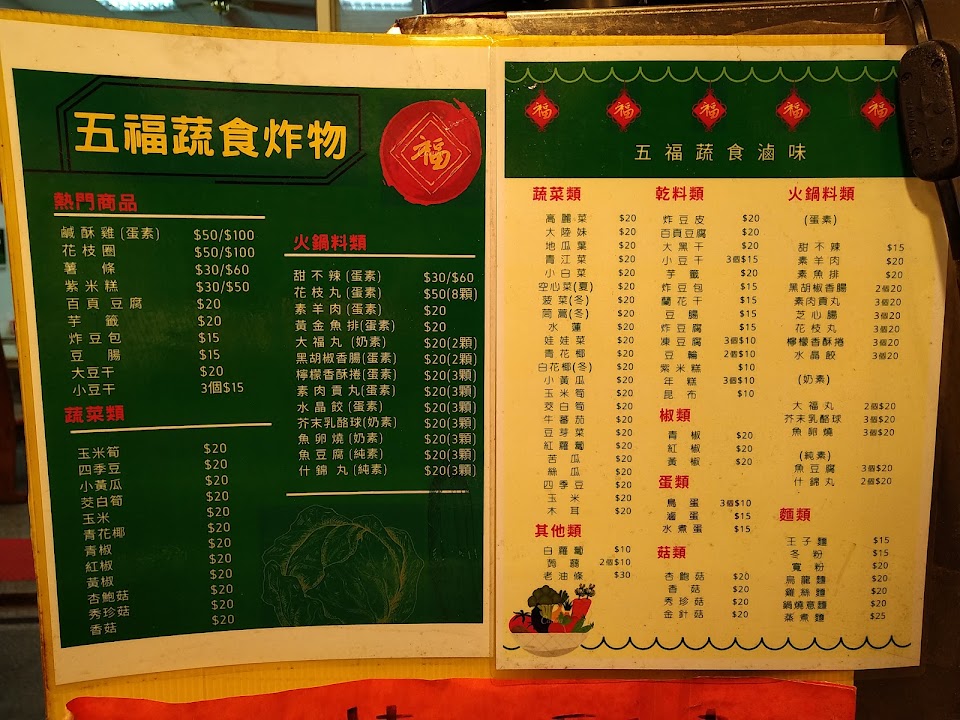 五福蔬食炸物
福
熱門商品
鹹酥雞(蛋素) $50/$100
花枝圈 $50/$100
薯條 $30/$60
紫米糕 $30/$50
百頁豆腐 $20
芋籤 $20
炸豆包 $15
豆腸 $15
大豆干 $20
小豆干 3個$15
蔬菜類
玉米筍 $20
四季豆 $20
小黃瓜 $20
茭白筍 $20
玉米 $20
青花椰 $20
青椒 $20
紅椒 $20
黃椒 $20
杏鮑菇 $20
秀珍菇 $20
香菇 $20
火鍋料類
甜不辣(蛋素) $30/$60
花枝丸(蛋素) $50(8顆)
素羊肉(蛋素) $20
黃金魚排(蛋素) $20
大福丸(奶素) $20(2顆)
黑胡椒香腸(蛋素) $20(2顆)
檸檬香酥捲(蛋素) $20(3顆)
素肉貢丸(蛋素) $20(3顆)
水晶餃(蛋素) $20(3顆)
芥末乳酪球(奶素) $20(3顆)
魚卵燒(奶素) $20(3顆)
魚豆腐(純素) $20(3顆)
什錦丸(純素) $20(3顆)
福 福 福 福 福
五福蔬食滷味
蔬菜類
高麗菜 $20
大陸妹 $20
地瓜葉 $20
青江菜 $20
小白菜 $20
空心菜(夏) $20
菠菜(冬) $20
茼蒿(冬) $20
水蓮 $20
娃娃菜 $20
青花椰 $20
白花椰(冬) $20
小黃瓜 $20
玉米筍 $20
茭白筍 $20
牛蕃茄 $20
豆芽菜 $20
紅蘿蔔 $20
苦瓜 $20
絲瓜 $20
四季豆 $20
玉米 $20
木耳 $20
其他類
白蘿蔔 $10
蒟蒻 2個$10
老油條 $30
乾料類
炸豆皮 $20
百頁豆腐 $20
大黑干 $20
小豆干 3個$15
芋籤 $20
炸豆包 $15
蘭花干 $15
豆腸 $15
炸豆腐 $15
凍豆腐 3個$10
豆輪 2個$10
紫米糕 $10
年糕 3個$10
昆布 $10
椒類
青椒 $20
紅椒 $20
黃椒 $20
蛋類
鳥蛋 3個$10
滷蛋 $15
水煮蛋 $15
菇類
杏鮑菇 $20
香菇 $20
秀珍菇 $20
金針菇 $20
火鍋料類
(蛋素)
甜不辣 $15
素羊肉 $20
素魚排 $20
黑胡椒香腸 2個$20
素肉貢丸 3個$20
芝心腸 3個$20
花枝丸 3個$20
檸檬香酥捲 3個$20
水晶餃 3個$20
(奶素)
大福丸 2個$20
芥末乳酪球 3個$20
魚卵燒 3個$20
(純素)
魚豆腐 3個$20
什錦丸 2個$20
麵類
王子麵 $15
冬粉 $15
寬粉 $20
烏龍麵 $20
雞絲麵 $20
鍋燒意麵 $20
蒸煮麵 $25